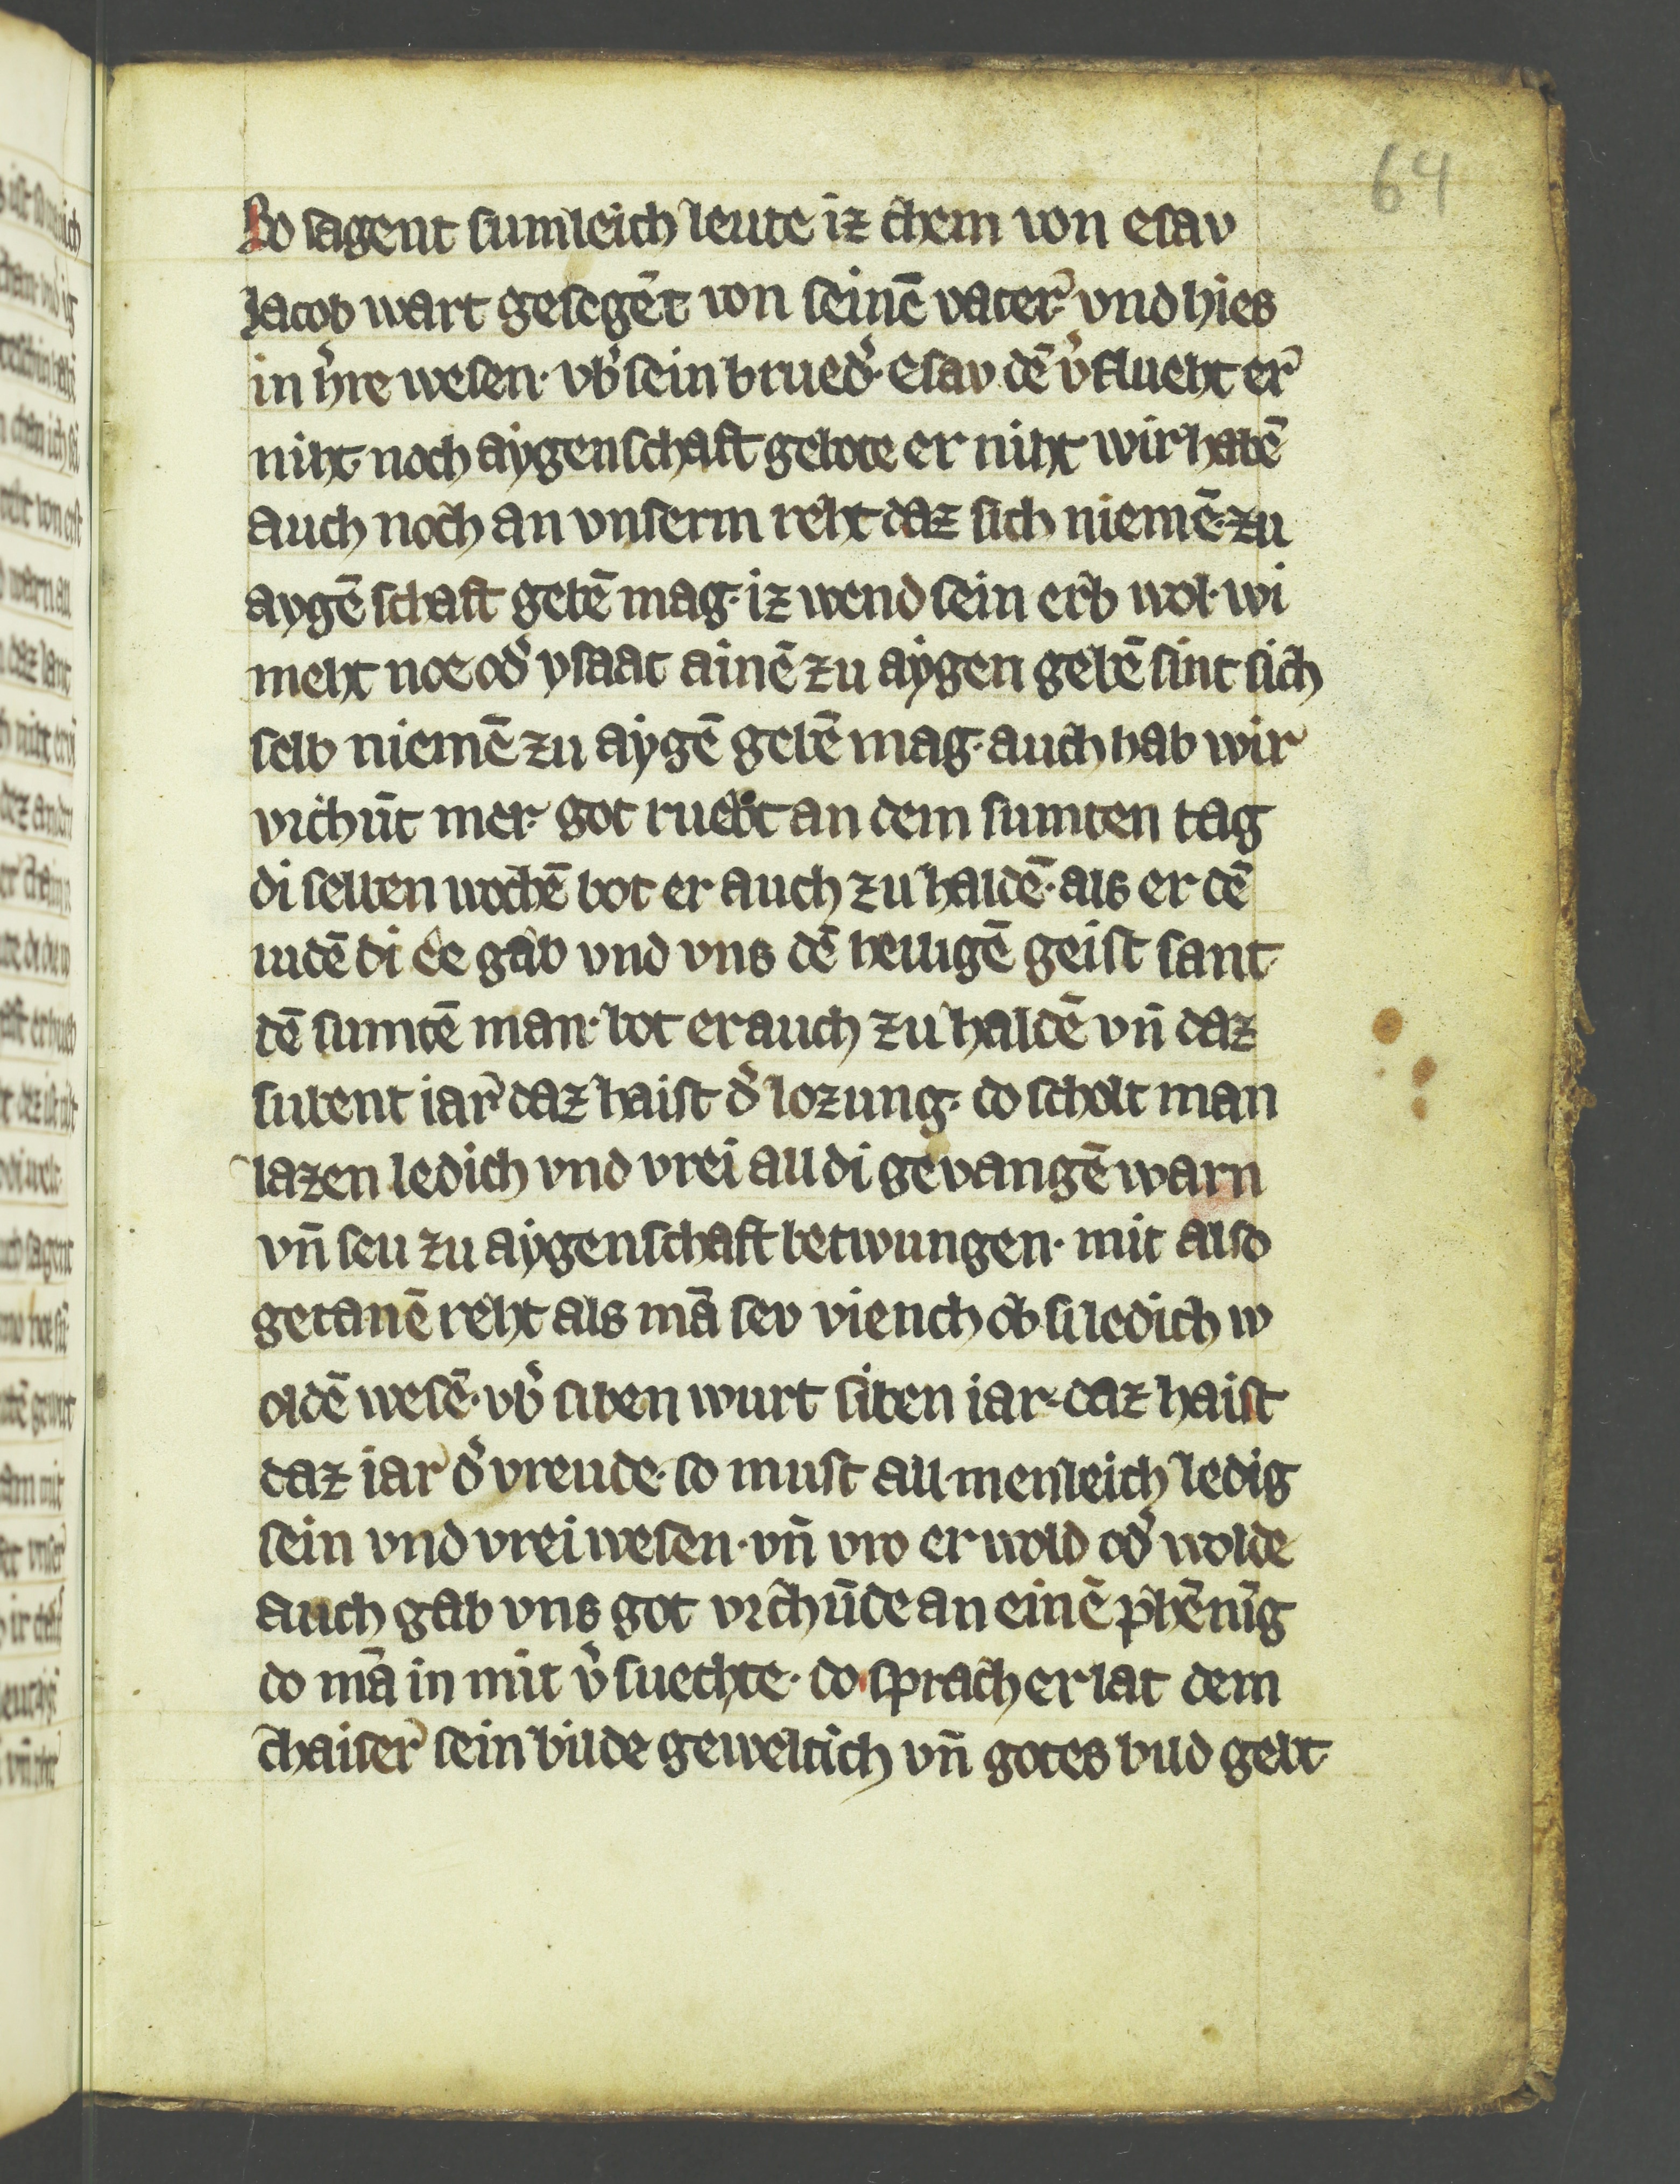 64
So sagent sumleich leute iz chem von esav
Jacob wart gesegēt von seinē vater vnd hies
in h̓re wesen· vb̓ sein brued̓· Esav dē v̓flueht er
niht· noch aygenschaft gebote er niht wir habē
auch noch an vnserm reht daz sich niemē zu
aygē schaft gebē mag· iz wend sein erb wol· wi
meht noe od̓ ysaac ainē zu aygen gebē sint sich
selb niemē zu aygē gebē mag· auch hab wir
vrchūt mer· got ruebt an dem sumten tag
di selben wochē bot er auch zu haldē· als er dē
iudē di ee gab vnd vns dē heiligē geist sant·
dē sumtē man· bot er auch zu haldē vn̄ daz
subent iar daz haist d̓ lozung· do scholt man
lazen ledich vnd vrei all di gevangē warn
vn̄ seu zu aygenschaft betwungen· mit also
getanē reht als mā sev viench ob si ledich w
oldē wesē· vb̓ siben wurt siben iar· daz haist
daz iar d̓ vreude· so must all menleich ledig
sein vnd vrei wesen· vn̄ vro er wold od̓ wolde
auch gab vns got vrchūde an einē phēnīg
do mā in mit v̓suechte· do sprach er lat dem
chaiser sein bilde geweltich vn̄ gotes bild gebt·